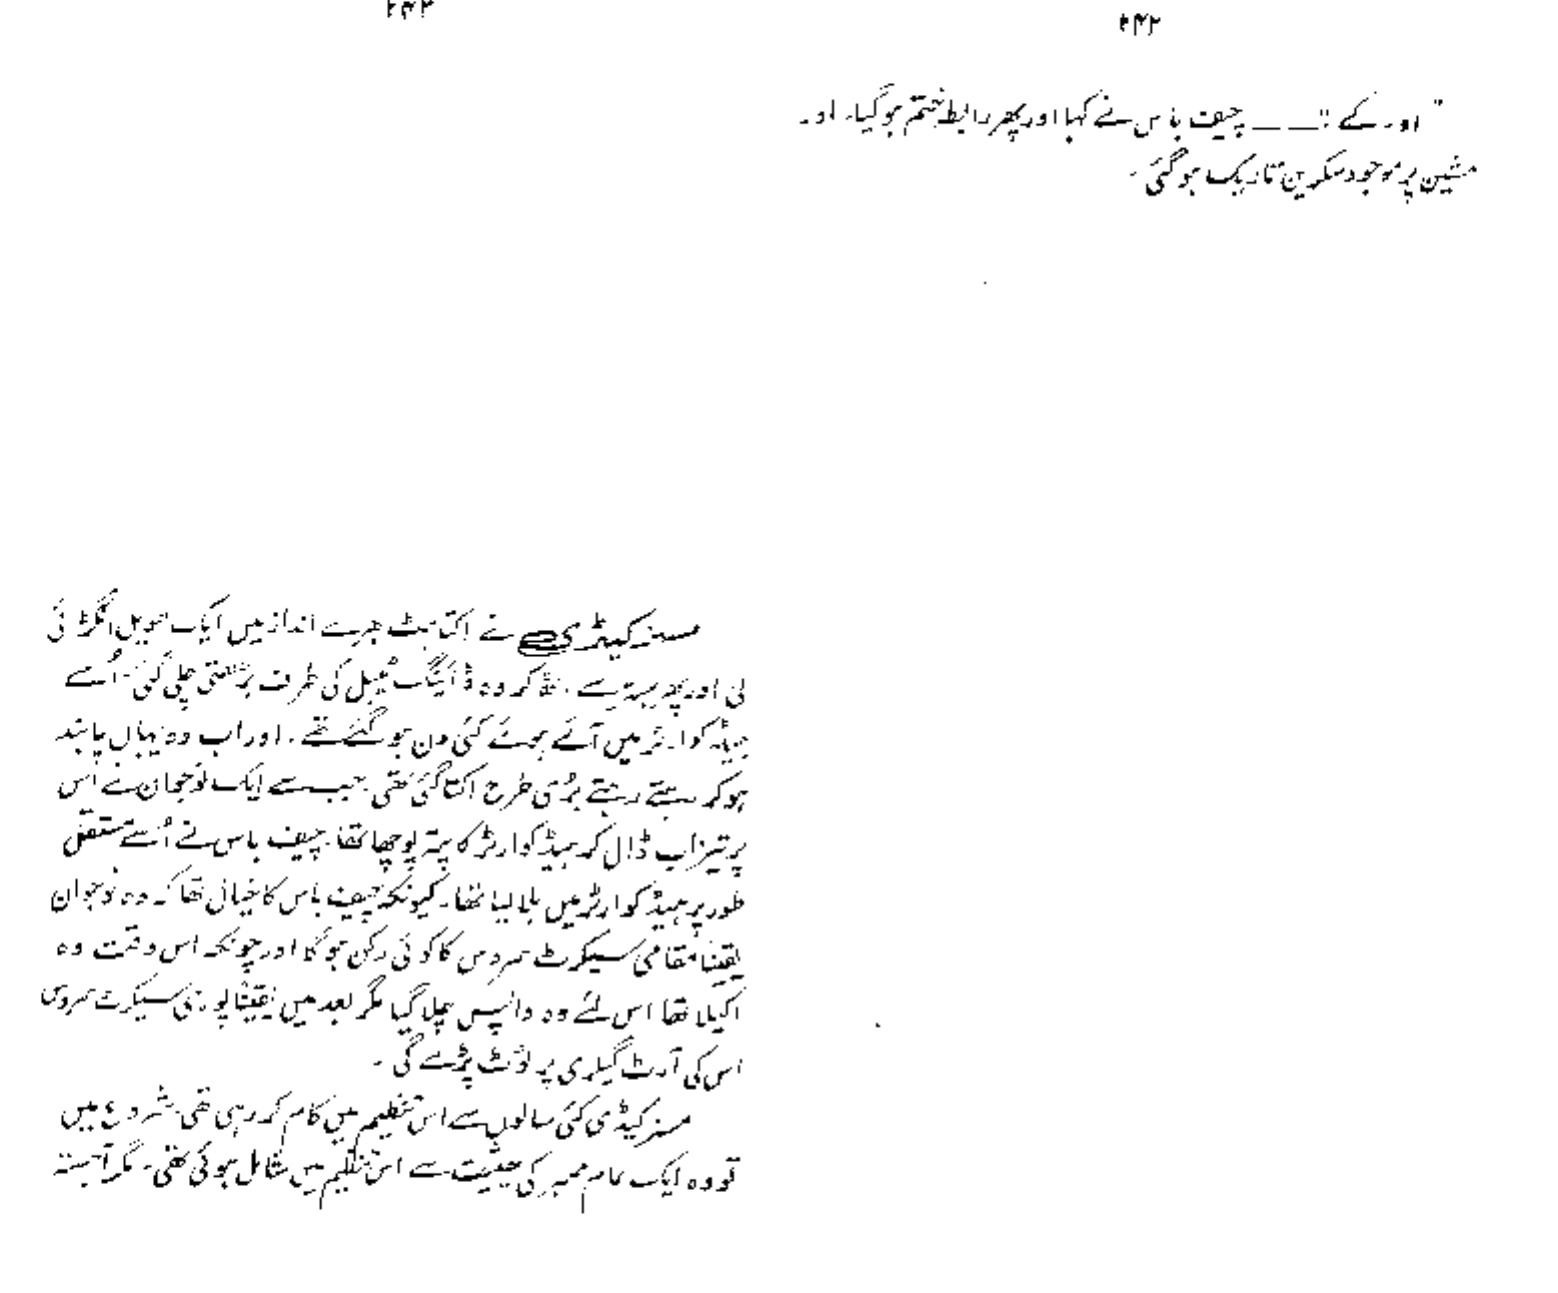 ۲۴۲
"اور کے"۔ —— چیف باس نے کہا اور پھر رابطہ ختم ہو گیا۔ اور
مشین پر موجود سکرین تاریک ہو گئی۔
۲۴۳
مسز کیڈی نے اکتاہٹ بھرے انداز میں ایک طویل انگڑائی
لی اور پھر بستر سے اٹھ کر وہ ڈائننگ ٹیبل کی طرف بڑھتی چلی گئی۔ اُسے
ہیڈ کوارٹر میں آئے ہوئے کئی دن ہو گئے تھے۔ اور اب وہ یہاں پابند
ہو کر رہتے رہتے بُری طرح اکتا گئی تھی۔ جب سے ایک نوجوان نے اُس
پر تیزاب ڈال کر ہیڈ کوارٹر کا پتہ پوچھا تھا۔ چیف باس نے اُسے مستقل
طور پر ہیڈ کوارٹر میں بلا لیا تھا۔ کیونکہ چیف باس کا خیال تھا کہ وہ نوجوان
یقیناً مقامی سیکرٹ سروس کا کوئی رکن ہو گا اور چونکہ اس وقت وہ
اکیلا تھا اس لئے وہ واپس چلا گیا مگر بعد میں یقیناً پوری سیکرٹ سروس
اس کی آرٹ گیلری پر ٹوٹ پڑے گی۔
مسز کیڈی کئی سالوں سے اس تنظیم میں کام کر رہی تھی۔ شروع میں
تو وہ ایک عام ممبر کی حیثیت سے اس تنظیم میں شامل ہوئی تھی۔ مگر آہستہ